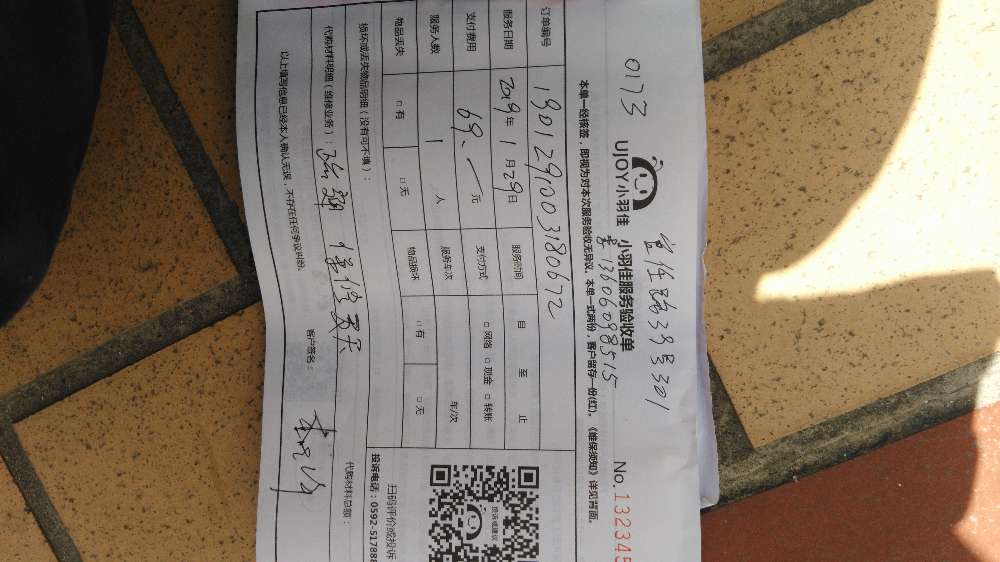 官任路39号301
0173 UJOY小羽佳 小羽佳服务验收单 No.132345
13606098515
本单一经核签，即视为对本次服务验收无异议。本单一式两份，客户留存一份(红)。《维保须知》详见背面。
订单编号 19012900318067 2
服务日期 2019年 1月29日 服务时间 自 至 止
支付费用 69.一元 支付方式 □网络 □现金 □转账
服务人数 1 人 服务车次 车/次
物品丢失 □有 □无 物品损坏 □有 □无
损坏或丢失物品明细（没有可不填）：
代购材料明细（维修业务）： 代购材料总额：
以上填写信息已经本人确认无误，不存在任何争议纠纷。 客户签名：
投诉建议
扫码评价或投诉
投诉电话：0592-517888